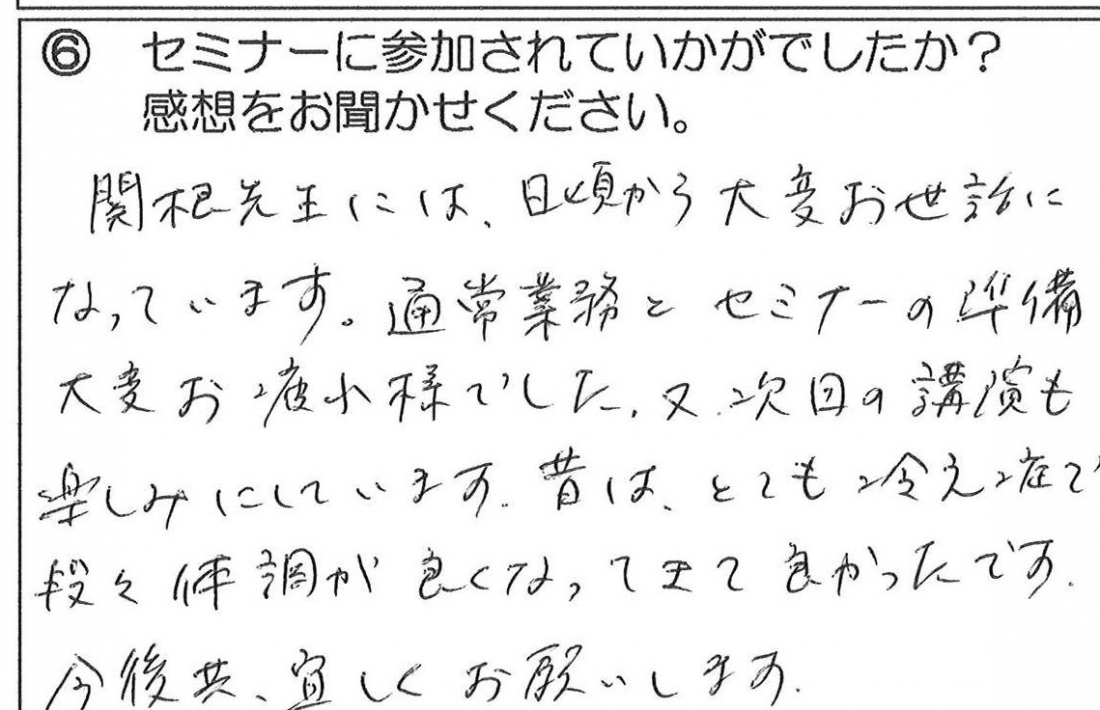 ⑥ セミナーに参加されていかがでしたか？
感想をお聞かせください。
関根先生には、日頃から大変お世話に
なっています。通常業務とセミナーの準備
大変お疲れ様でした。又、次回の講演も
楽しみにしています。昔は、とても冷え症で
段々体調が良くなってきて良かったです。
今後共、宜しくお願いします。